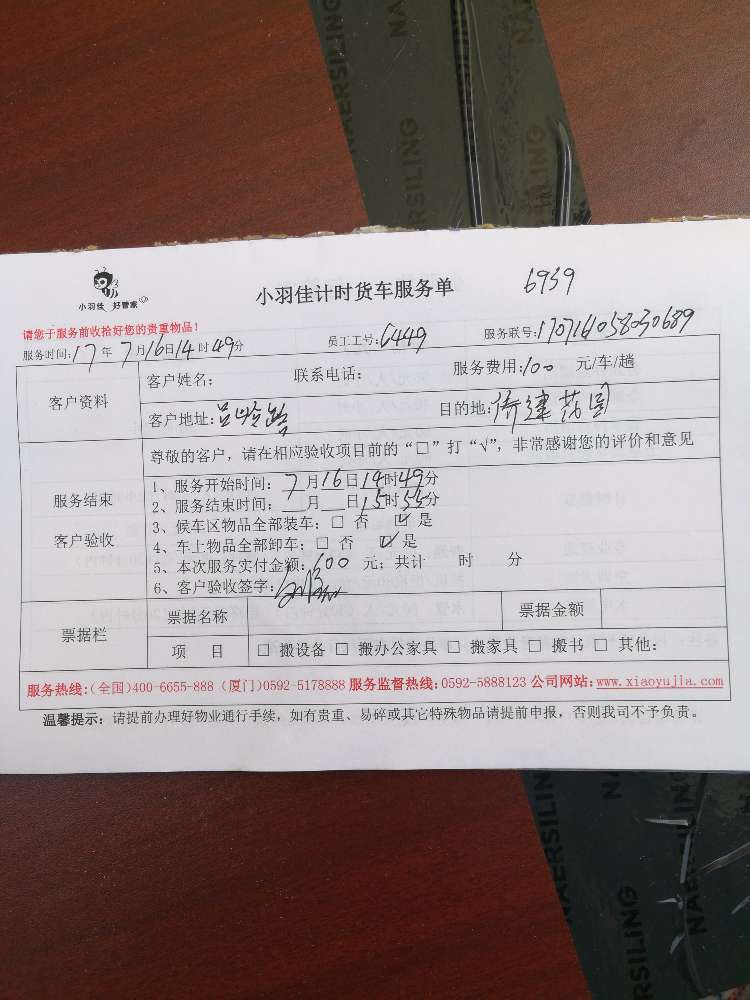 NAERSILING
NAERSILING
NAERSILING
小羽佳 好管家
小羽佳计时货车服务单
6939
请您于服务前收拾好您的贵重物品！
服务时间：17年7月16日14时49分 员工工号：6449 服务联号：1707161058030689
客户资料
客户姓名： 联系电话： 服务费用：100 元/车/趟
客户地址： 目的地：
尊敬的客户，请在相应验收项目前的“□”打“√”，非常感谢您的评价和意见
服务结束
客户验收
1、服务开始时间：7月16日14时49分
2、服务结束时间：__月__日15时55分
3、候车区物品全部装车：□ 否 ☑ 是
4、车上物品全部卸车：□ 否 ☑ 是
5、本次服务实付金额：600 元；共计 时 分
6、客户验收签字：
票据栏
票据名称 票据金额
项 目 □ 搬设备 □ 搬办公家具 □ 搬家具 □ 搬书 □ 其他：
服务热线：(全国)400-6655-888 (厦门)0592-5178888 服务监督热线：0592-5888123 公司网站：www.xiaoyujia.com
温馨提示：请提前办理好物业通行手续，如有贵重、易碎或其它特殊物品请提前申报，否则我司不予负责。
NAERSILING
NAERSILING